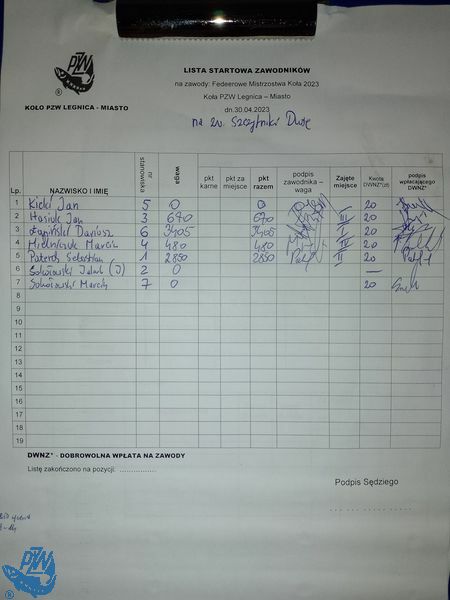 PZW
®
KOŁO PZW LEGNICA - MIASTO
LISTA STARTOWA ZAWODNIKÓW
na zawody: Federowe Mistrzostwa Koła 2023
Koła PZW Legnica – Miasto
dn.30.04.2023
na zw. Szczytniki Duże
Lp. NAZWISKO I IMIĘ nr stanowiska waga pkt karne pkt za miejsce pkt razem podpis zawodnika – waga Zajęte miejsce Kwota DWNZ*(zł) podpis wpłacającego DWNZ*
1 Kicki Jan 5 0 0 20
2 Hasiuk Jan 3 670 670 III 20
3 Dariusz 6 3405 3405 I 20
4 Marcin 4 480 480 20
5 Sebastian 1 2850 2850 II 20
6 Sokołowski (J) 2 0 —
7 Sokołowski Marcin 7 0 20
8
9
10
11
12
13
14
15
16
17
18
19
DWNZ* - DOBROWOLNA WPŁATA NA ZAWODY
Listę zakończono na pozycji: ...............
Podpis Sędziego
PZW
®